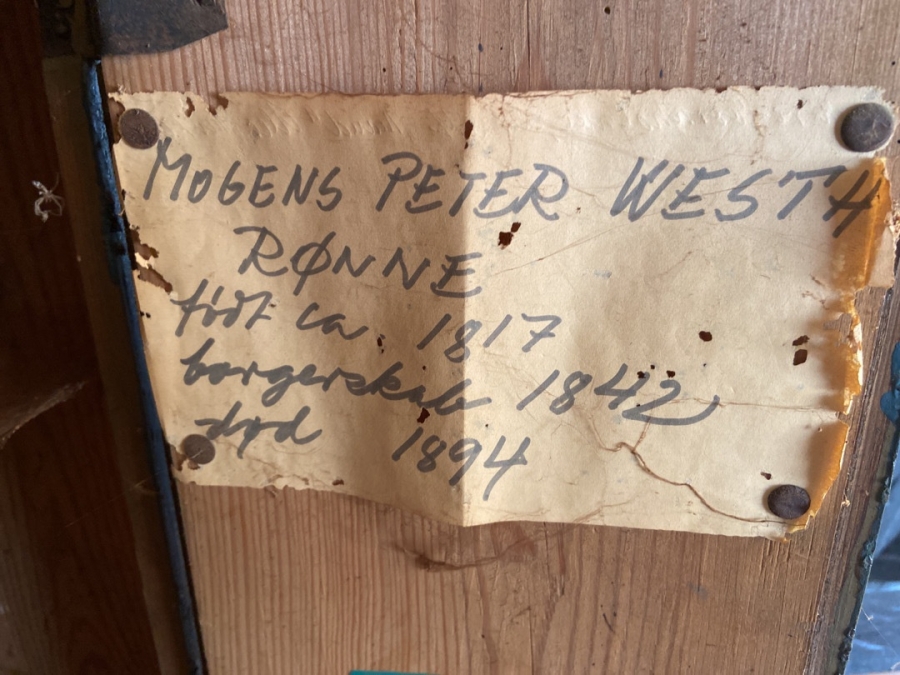 MOGENS PETER WESTH
RØNNE
født ca. 1817
borgerskab 1842
død 1894